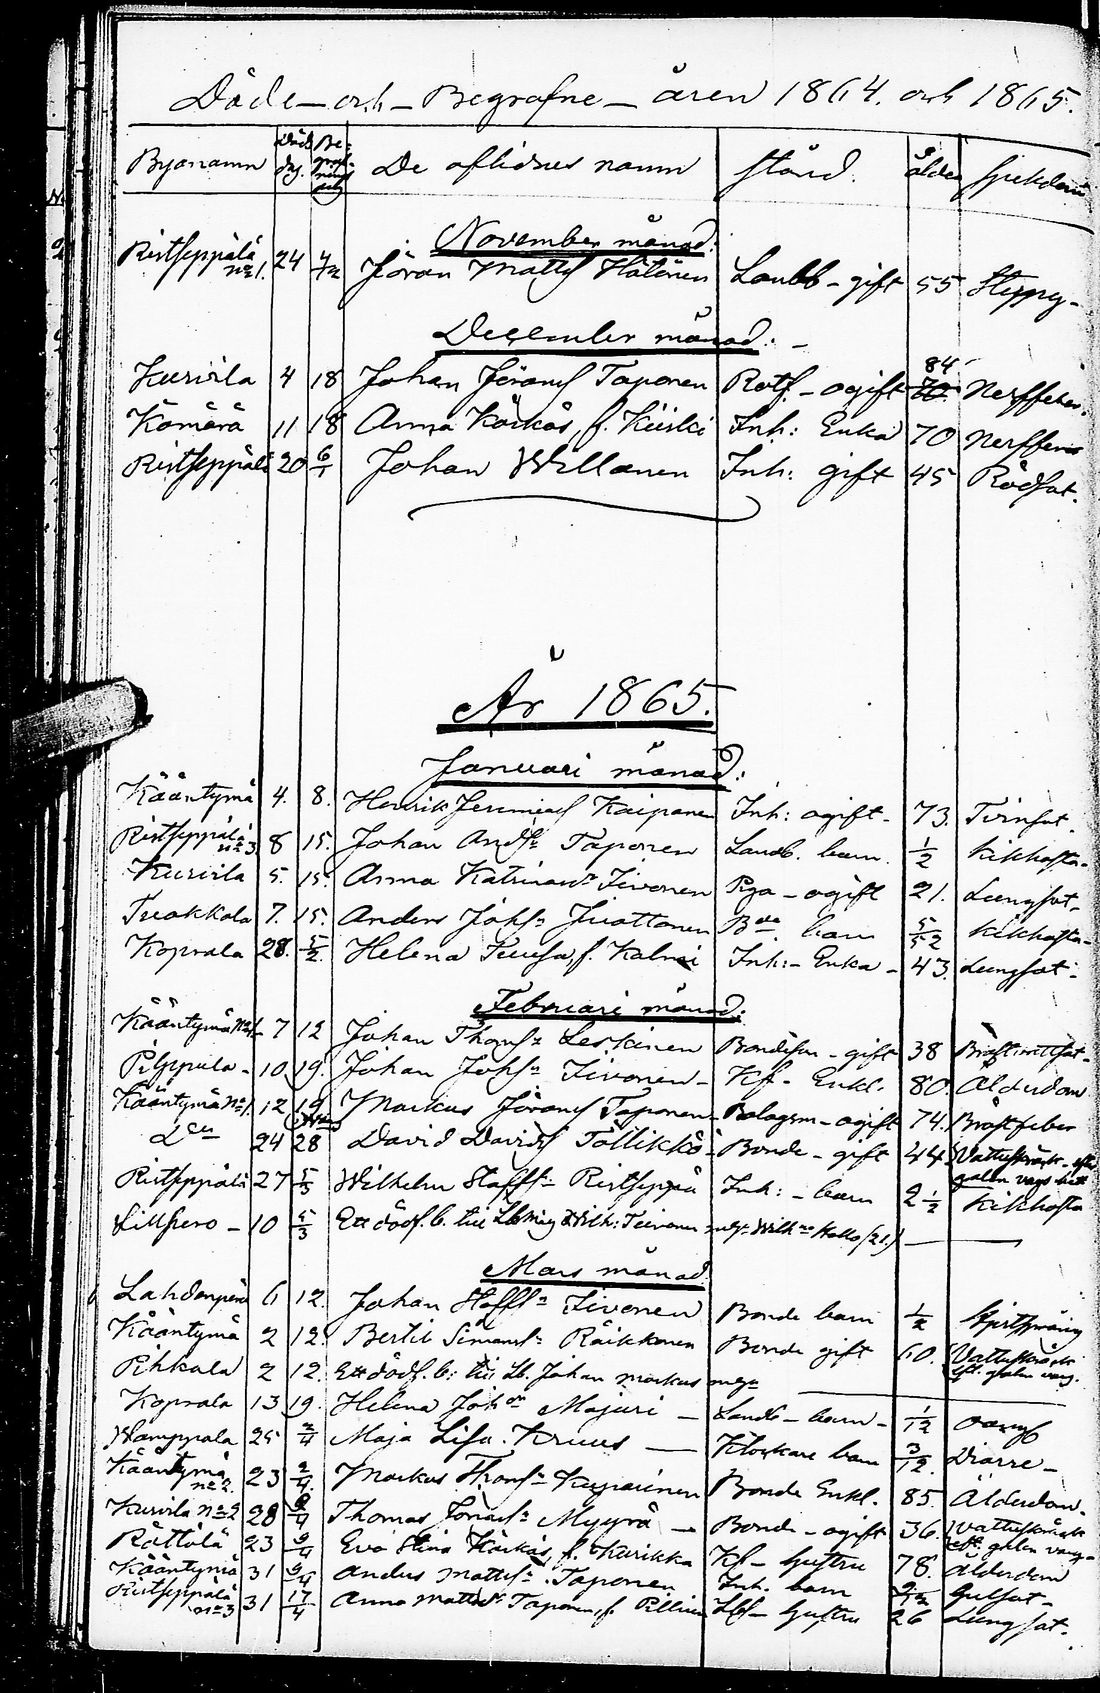 Döde och Begrafne åren 1864. och 1865.
Byanamn Död dag. Begrafnings dag De aflidnes namn stånd. ålder sjukdom
November månad.
Ristseppälä No 1. 24 4/12 Jöran Matts Hätönen Landb - gift 55
December månad.
Kurivla 4 18 Johan Jörans Taponen Rotf - ogift 84 70 Nerffeber
Kämärä 11 18 Anna Kärkäs, f. Kiiski Inh: Enka 70 Nerffeber
Ristseppälä 20 6/1 Johan Willanen Inh: gift 45 Rödsot.
År 1865.
Januari månad.
Kääntymä 4. 8. Henrik Jeremias Kaipanen Inh: ogift - 73. Tvinsot.
Ristseppälä No 3. 8 15. Johan Ands: Taponen Landb. barn 1/2 kikhosta -
Kurivla 5. 15. Anna Katrina Tivonen Piga - ogift 21. Lungsot -
Tuokkola 7. 15. Anders Johs: Juottonen Bde barn 5/52 kikhosta -
Koprala 28. 5/2. Helena f. Kalmi Inh: - Enka - 43. Lungsot -
Februari månad.
Kääntymä No 1. 7 12 Johan Thoms: Leskinen Bondeson - gift 38
Pilppula - 10 19. Johan Johs: Tivonen - Kf - Enkl. 80. Ålderdom
Kääntymä No 1. 12 19 Markus Jörans Taponen Bolagsm - ogift 74. Bröstfeber
Dito 24 28 David Davids Tällikkö - Bonde - gift 44. Vattuskräck - efter galen vargs bett
Ristseppälä 27 5/3 Wilhelm Staffs: Ristseppä Inh: - barn 2 1/2 Kikhosta
Lillpero - 10 5/3 Ett dödf. b. till Wilh: Teivonen
Mars månad
Lahdenperä 6 12. Johan Staffs: Tivonen Bonde barn 1/2
Kääntymä 2 12. Bertil Simons: Räikkönen Bonde gift 60. Vattuskräck eft. galen varg.
Pihkala 2 12. Ett dödf. b: till Lb. Johan Markus
Koprala 13 19. Helena Joh: Majuri - Landb - barn - 1/12
Wamppala 25 2/4 Maja Lisa Kruus - Klockare barn 3/12. Diarre -
Kääntymä No 2. 23 2/4. Markus Thoms: Bonde Enkl. 85. Ålderdom.
Kurivla No 2 28 9/4 Thomas Jörans: Myyrä - Bonde - ogift 36. Vattuskräck eft. galen varg -
Rättölä 23 9/4 Eva Stina Kärkäs, f. Kurikka Kf - hustru 78. Ålderdom
Kääntymä 31 9/4 Anders Matts: Taponen Inh. barn Gulsot -
Ristseppälä No 3 31 17/4 Anna Matts: Taponen, f. Pillinen Lbf - hustru 26 Lungsot.